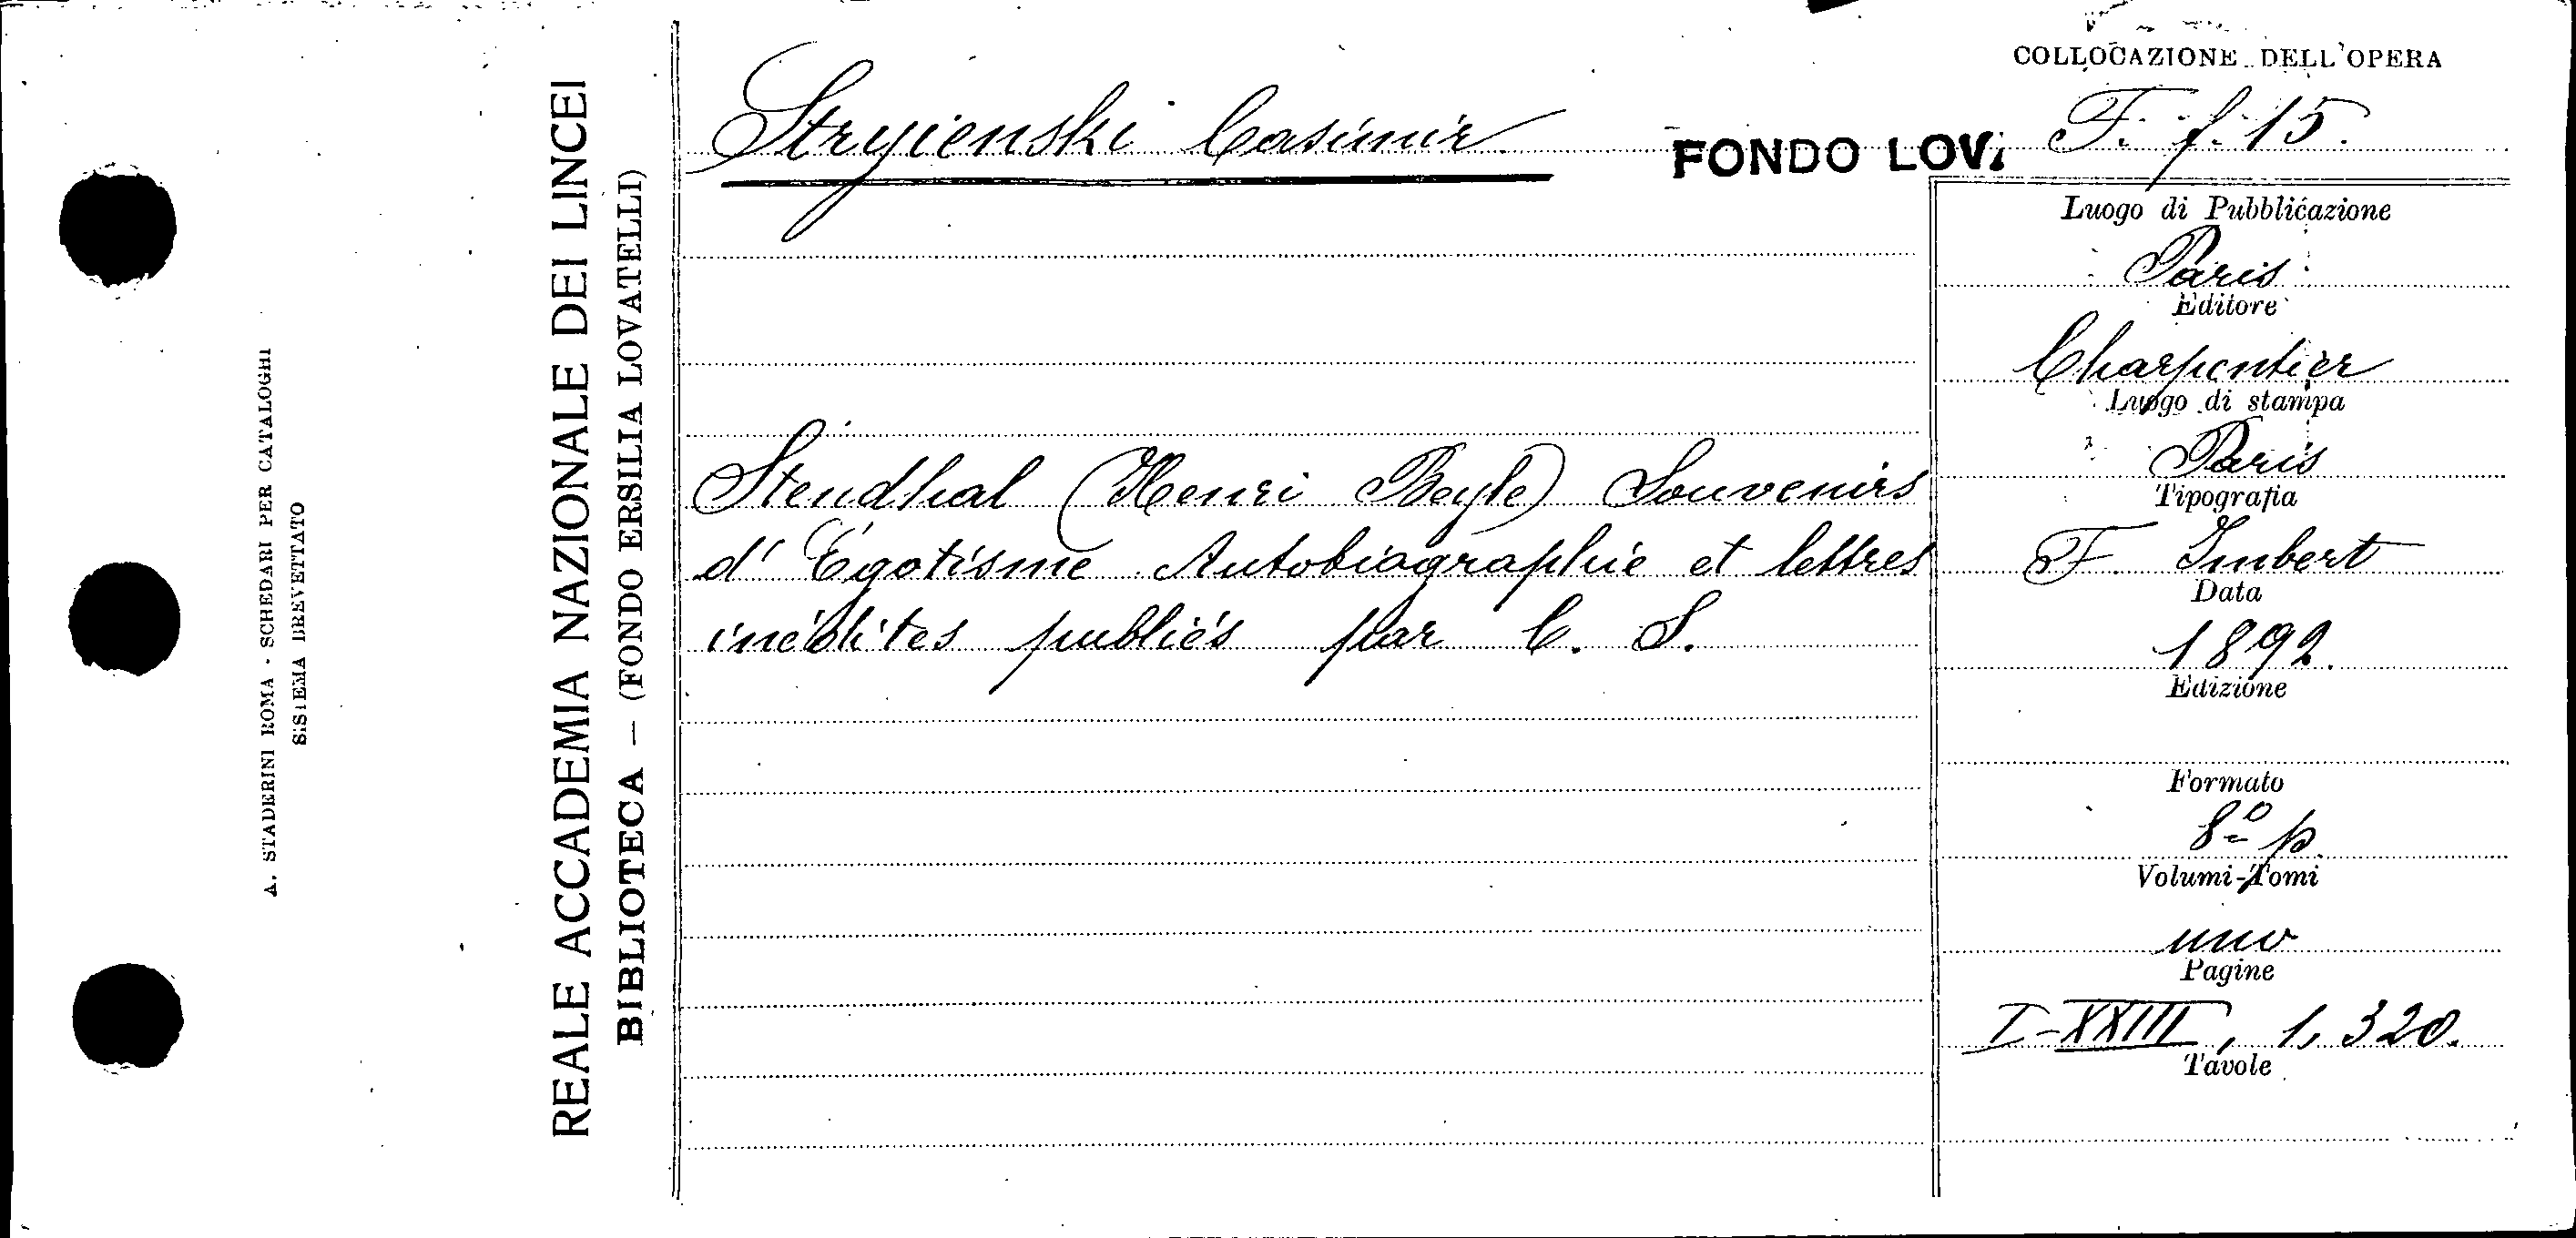 A. STADERINI ROMA - SCHEDARI PER CATALOGHI
SISTEMA BREVETTATO
REALE ACCADEMIA NAZIONALE DEI LINCEI
BIBLIOTECA — (FONDO ERSILIA LOVATELLI)
Stryienski Casimir
FONDO LOV.
Stendhal (Henri Beyle) Souvenirs
d' Égotisme Autobiographie et lettres
inédites publiés par C. S.
COLLOCAZIONE DELL'OPERA
F. f. 15.
Luogo di Pubblicazione
Paris
Editore
Charpentier
Luogo di stampa
Paris
Tipografia
F. Imbert
Data
1892.
Edizione
Formato
8º p.
Volumi-Tomi
uno
Pagine
I-XXIII, 1, 320.
Tavole